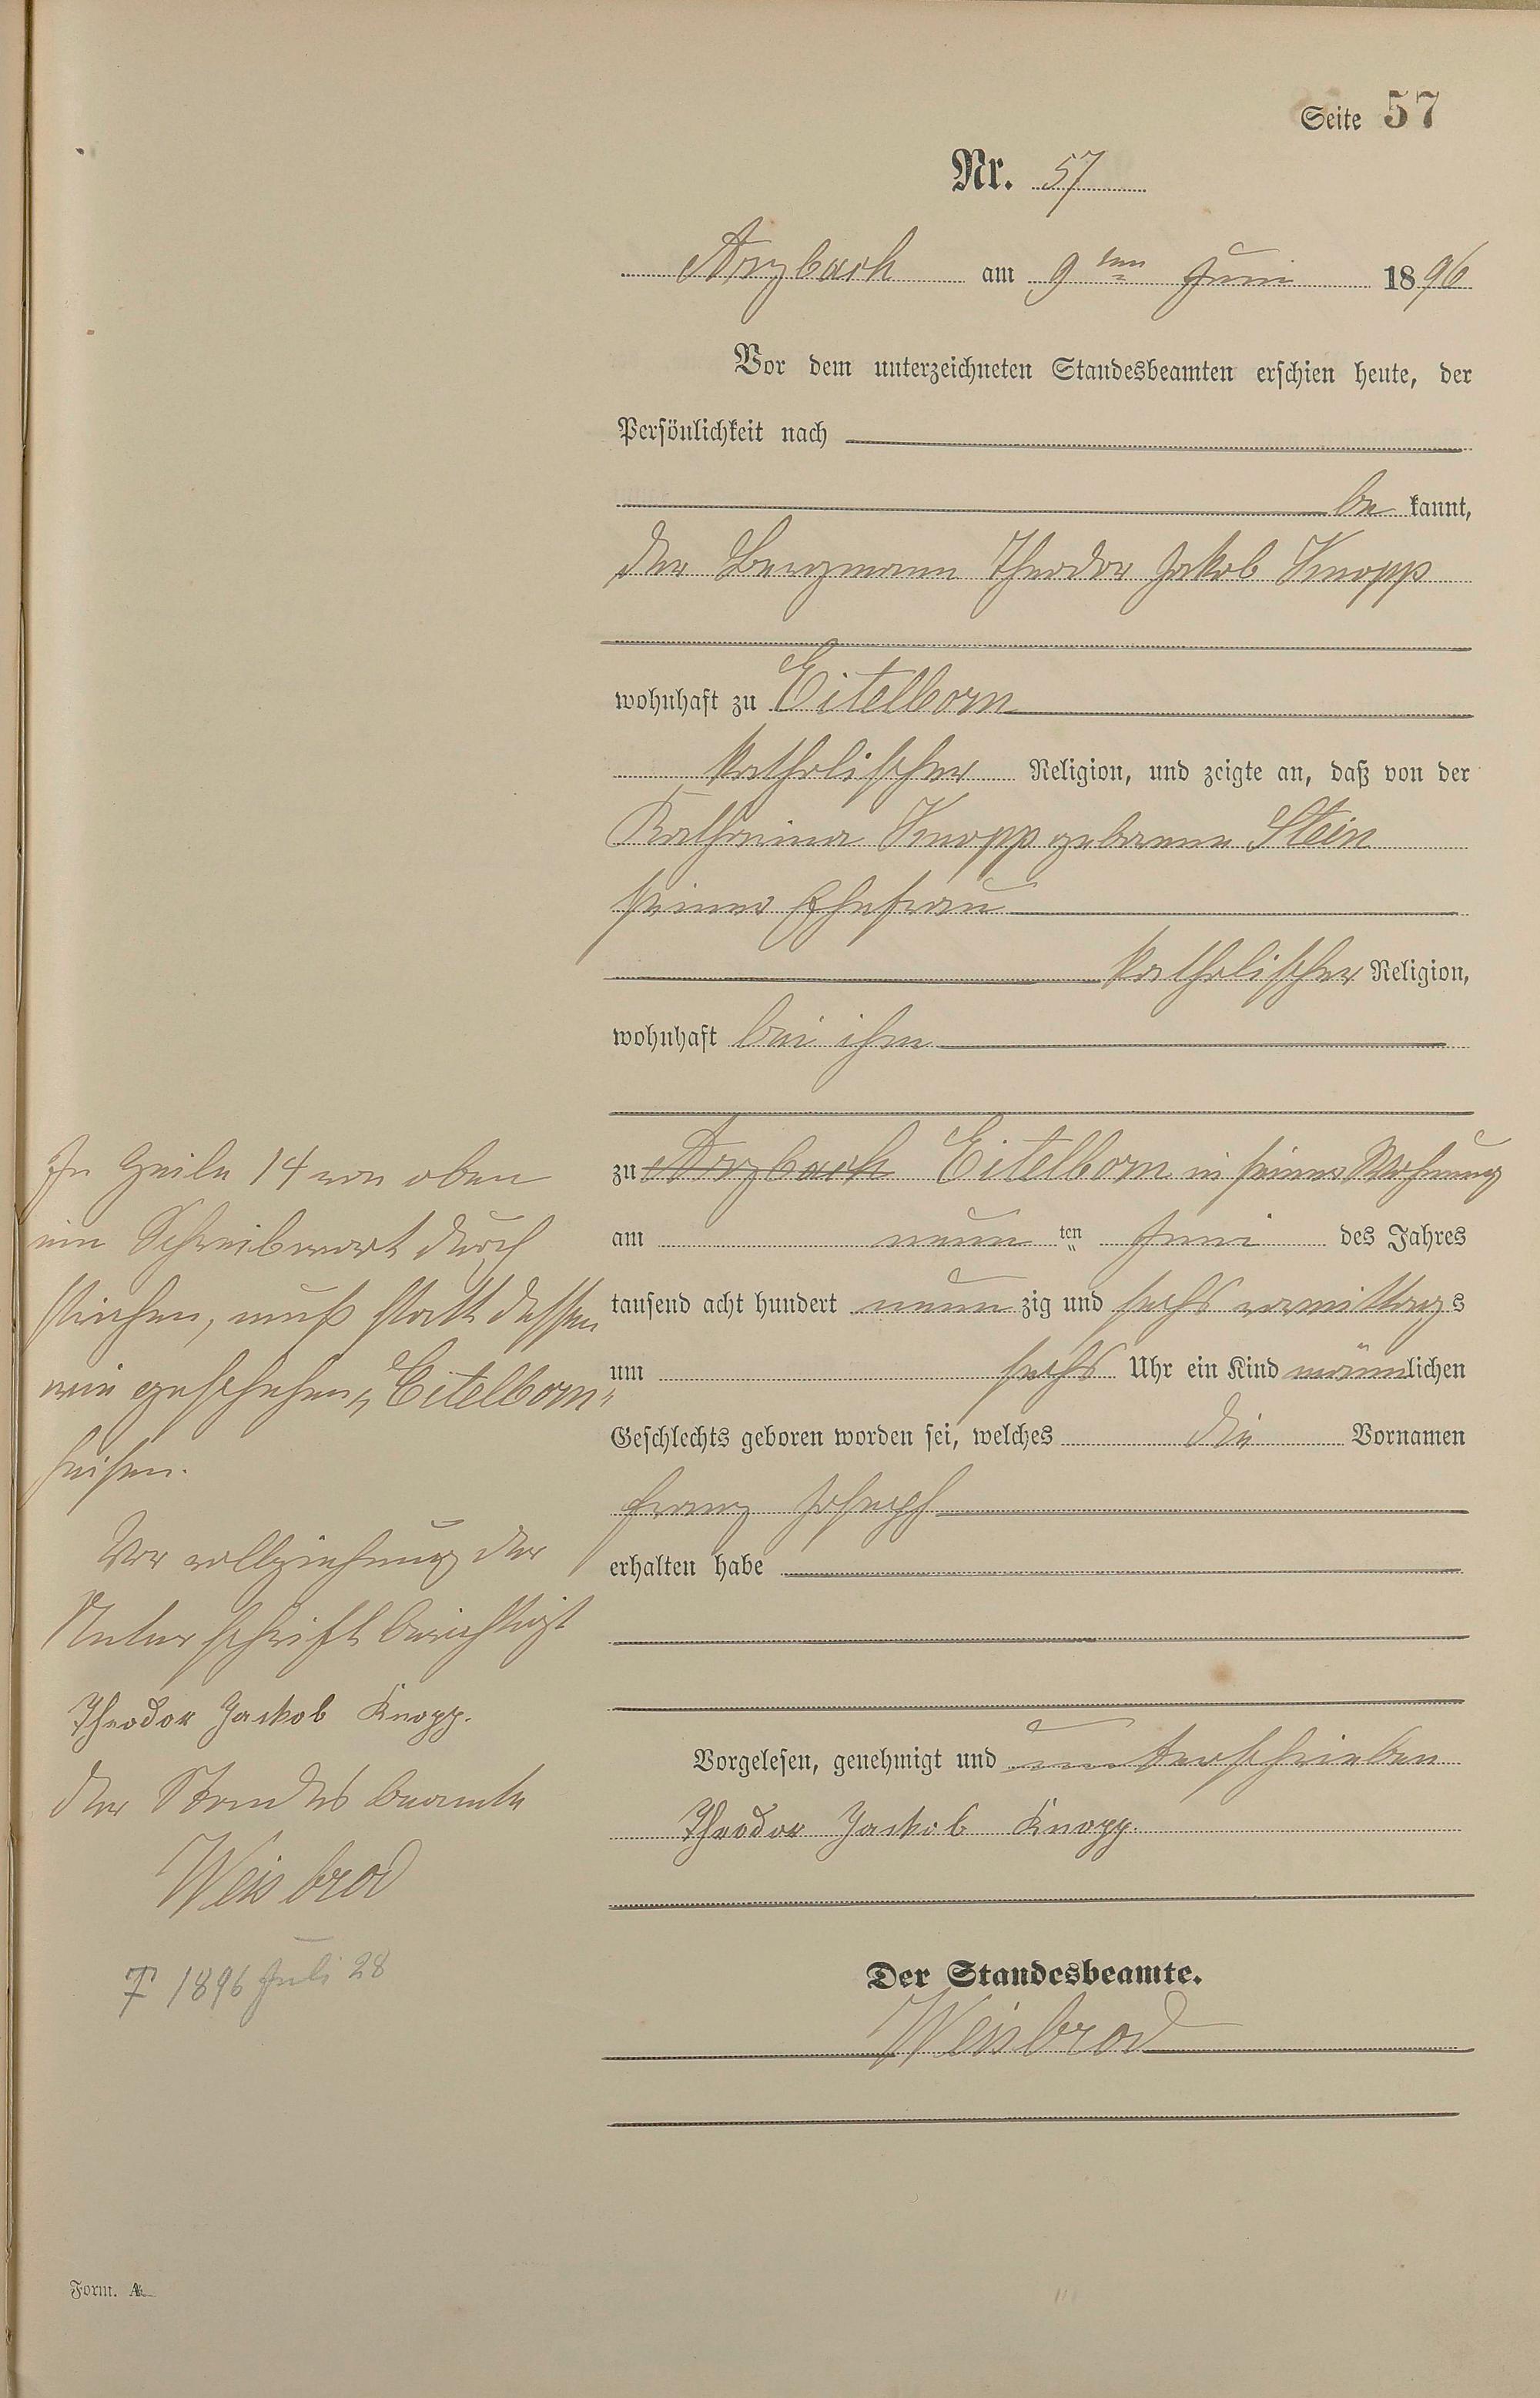 Seite 57
Nr. 57
Arzbach am 9ten Juni 1896
Vor dem unterzeichneten Standesbeamten erschien heute, der
Persönlichkeit nach
be kannt,
der Bergmann Theodor Jakob Knopp
wohnhaft zu Eitelborn
katholischer Religion, und zeigte an, daß von der
Katharina Knopp geborene Stein
seiner Ehefrau
katholischer Religion,
wohnhaft bei ihm
zu Arzbach Eitelborn in seiner Wohnung
am neun ten Juni des Jahres
tausend acht hundert neun zig und sechs vormittags
um sechs Uhr ein Kind männlichen
Geschlechts geboren worden sei, welches die Vornamen
Franz Joseph
erhalten habe
Vorgelesen, genehmigt und unterschrieben
Theodor Jackob Knopp.
Der Standesbeamte.
Weisbrod
In Zeile 14 von oben
ein Schreibwort durch
strichen, muß statt dessen
wie geschehen „Eitelborn"
heißen.
Vor vollziehung der
Unterschrift berichtigt
Theodor Jackob Knopp.
der Standesbeamte
Weisbrod
† 1896 Juli 28
Form. A.